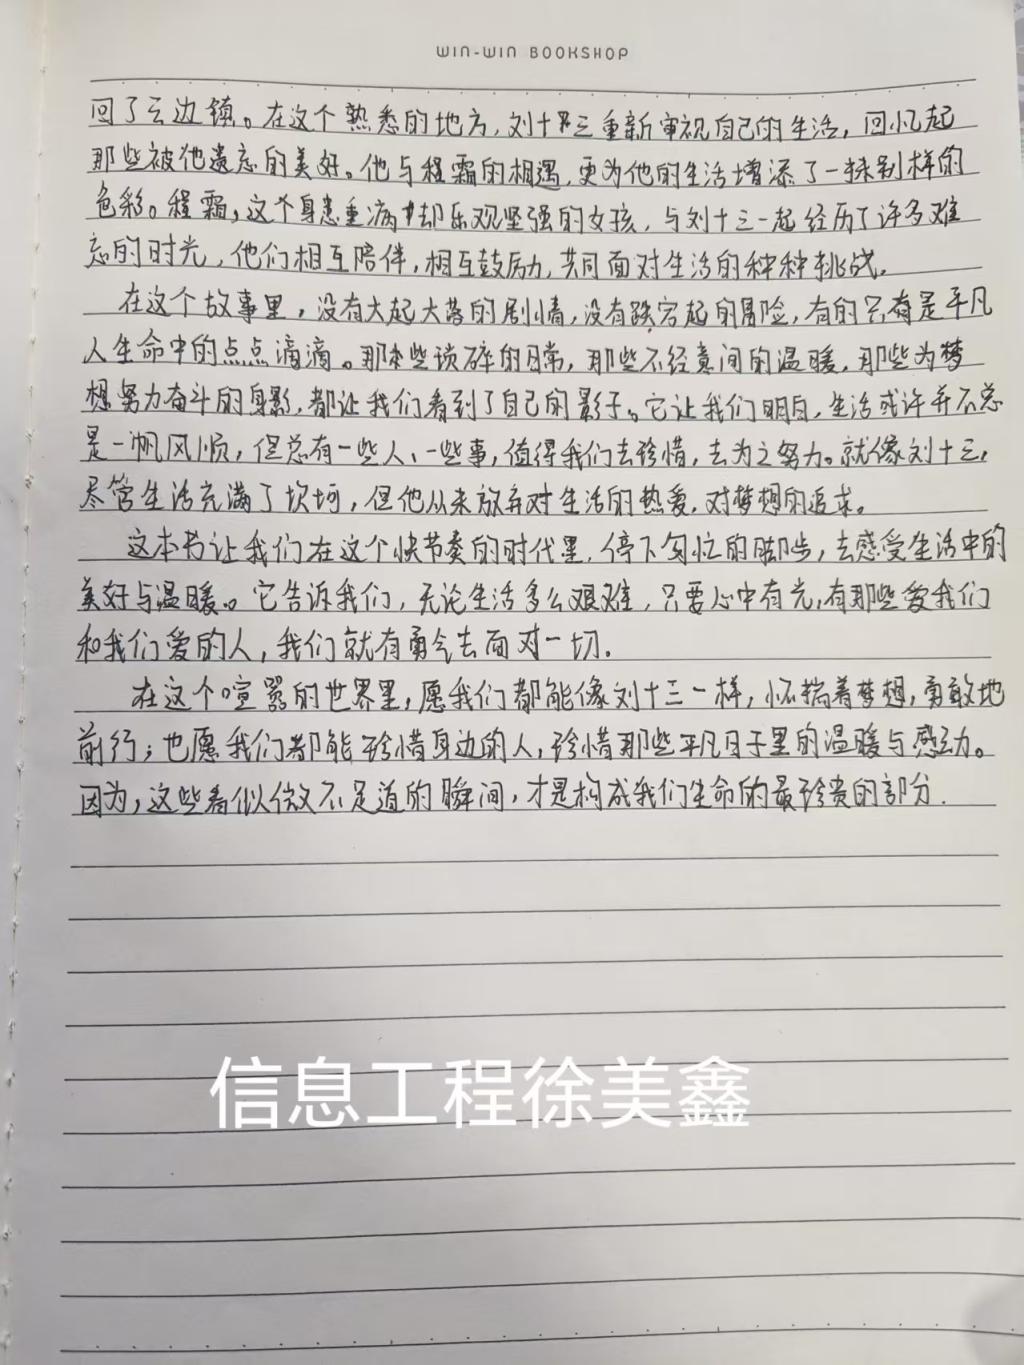 WIN-WIN BOOKSHOP
回了云边镇。在这个熟悉的地方，刘十三重新审视自己的生活，回忆起
那些被他遗忘的美好。他与程霜的相遇，更为他的生活增添了一抹别样的
色彩。程霜，这个身患重病却乐观坚强的女孩，与刘十三一起经历了许多难
忘的时光，他们相互陪伴，相互鼓励，共同面对生活的种种挑战。
在这个故事里，没有大起大落的剧情，没有跌宕起的冒险，有的只有是平凡
人生命中的点点滴滴。那些琐碎的日常，那些不经意间的温暖，那些为梦
想努力奋斗的身影，都让我们看到了自己的影子。它让我们明白，生活或许并不总
是一帆风顺，但总有一些人、一些事，值得我们去珍惜，去为之努力。就像刘十三，
尽管生活充满了坎坷，但他从未放弃对生活的热爱，对梦想的追求。
这本书让我们在这个快节奏的时代里，停下匆忙的脚步，去感受生活中的
美好与温暖。它告诉我们，无论生活多么艰难，只要心中有光，有那些爱我们
和我们爱的人，我们就有勇气去面对一切.
在这个喧嚣的世界里，愿我们都能像刘十三一样，怀揣着梦想，勇敢地
前行；也愿我们都能珍惜身边的人，珍惜那些平凡日子里的温暖与感动。
因为，这些看似微不足道的瞬间，才是构成我们生命的最珍贵的部分.
信息工程徐美鑫